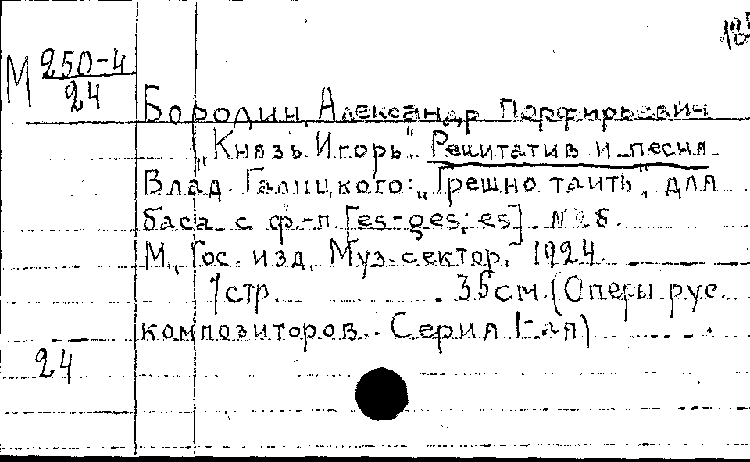 М 250-4
24
Бородин, Александр Порфирьевич
„Князь Игорь". Речитатив и песня
Влад. Галицкого: „Грешно таить", для
баса с ф-п. [es-ges; es]. №
М., Гос. изд. Муз. сектор, 1924.
7 стр. 35 см. (Оперы рус.
композиторов. Серия I-ая)
24